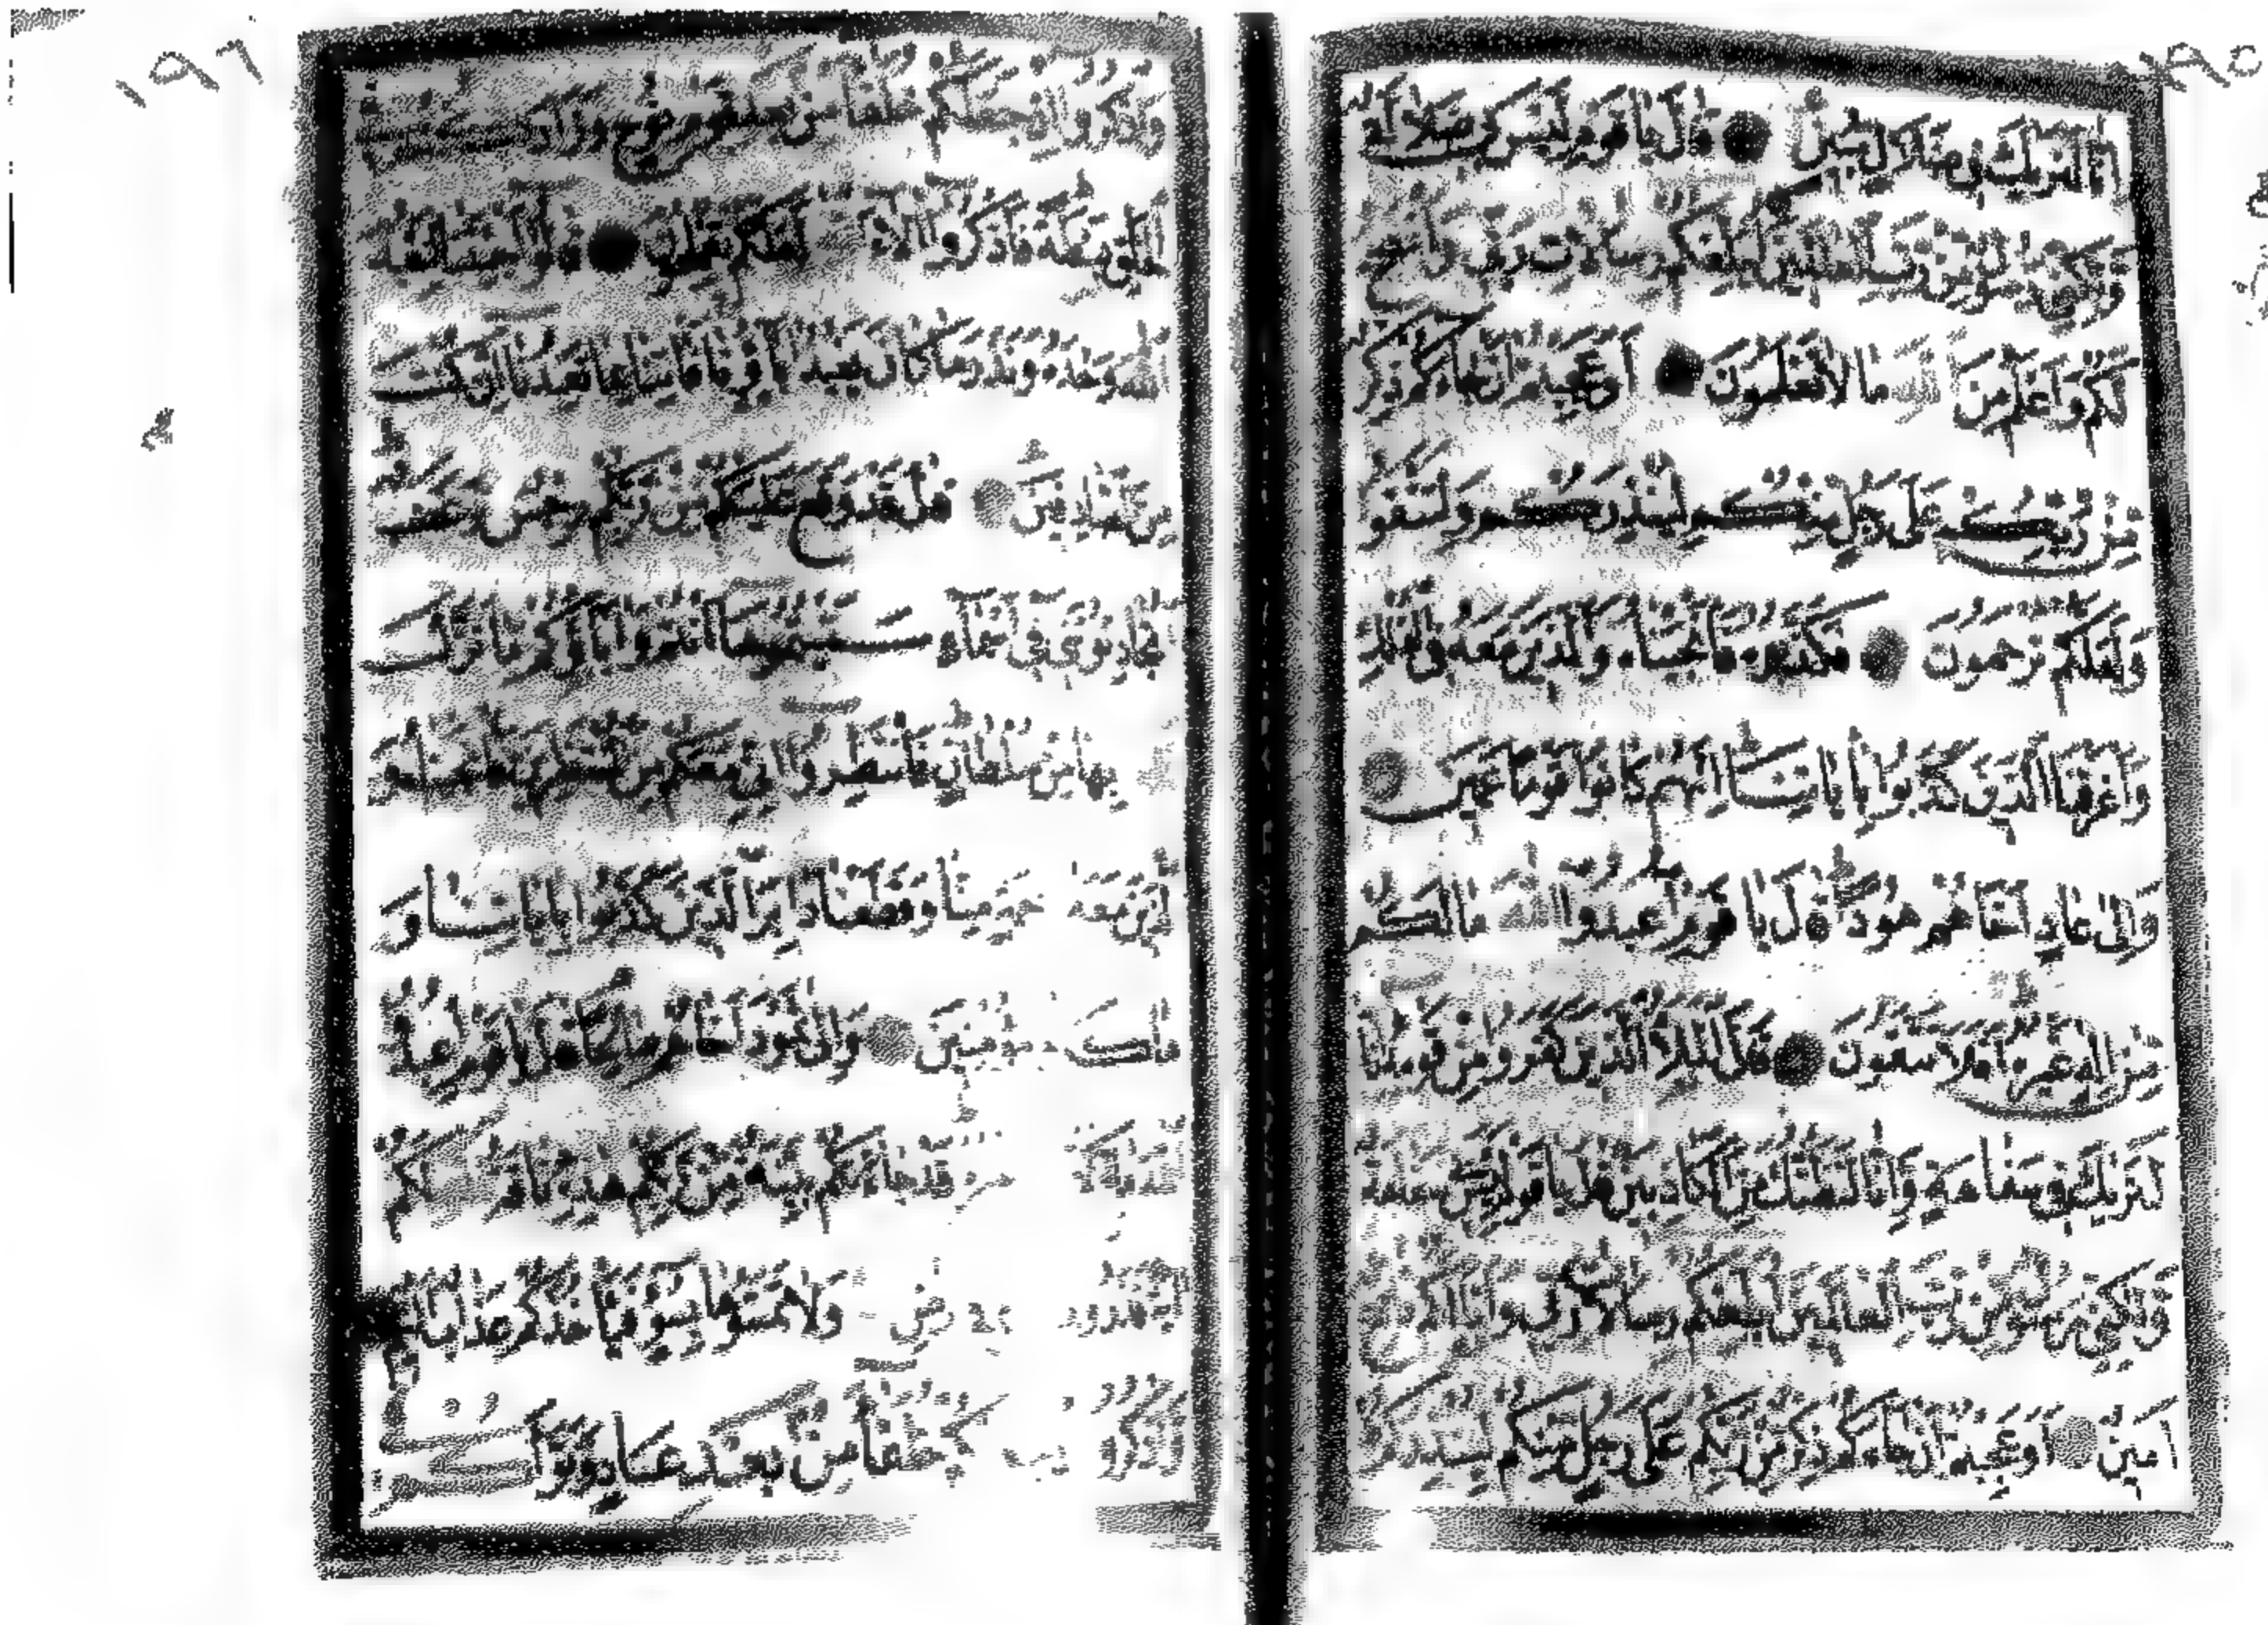 ١٩٥
انا لنريك في ضلال مبين قال يا قوم ليس بي ضلالة
ولكني رسول من رب العالمين ابلغكم رسالات ربي وانصح
لكم واعلم من الله ما لا تعلمون اوعجبتم ان جاءكم ذكر
من ربكم على رجل منكم لينذركم ولتتقوا
ولعلكم ترحمون فكذبوه فانجيناه والذين معه في الفلك
واغرقنا الذين كذبوا باياتنا انهم كانوا قوما عمين
والى عاد اخاهم هودا قال يا قوم اعبدوا الله ما لكم
من اله غيره افلا تتقون قال الملا الذين كفروا من قومه انا
لنريك في سفاهة وانا لنظنك من الكاذبين قال يا قوم ليس بي سفاهة
ولكني رسول من رب العالمين ابلغكم رسالات ربي وانا لكم ناصح
امين اوعجبتم ان جاءكم ذكر من ربكم على رجل منكم لينذركم
١٩٦
واذكروا اذ جعلكم خلفاء من بعد قوم نوح وزادكم
في الخلق بصطة فاذكروا الاء الله لعلكم تفلحون قالوا اجئتنا لنعبد
الله وحده ونذر ما كان يعبد اباؤنا فاتنا بما تعدنا ان كنت
من الصادقين قال قد وقع عليكم من ربكم رجس وغضب
اتجادلونني في اسماء سميتموها انتم واباؤكم ما نزل
الله بها من سلطان فانتظروا اني معكم من المنتظرين فانجيناه و
الذين معه برحمة منا وقطعنا دابر الذين كذبوا باياتنا و
ما كانوا مؤمنين والى ثمود اخاهم صالحا قال يا قوم اعبدوا
الله ما لكم من اله غيره قد جاءتكم بينة من ربكم هذه ناقة الله لكم
اية فذروها في ارض الله ولا تمسوها بسوء فياخذكم عذاب اليم
واذكروا اذ جعلكم خلفاء من بعد عاد وبواكم